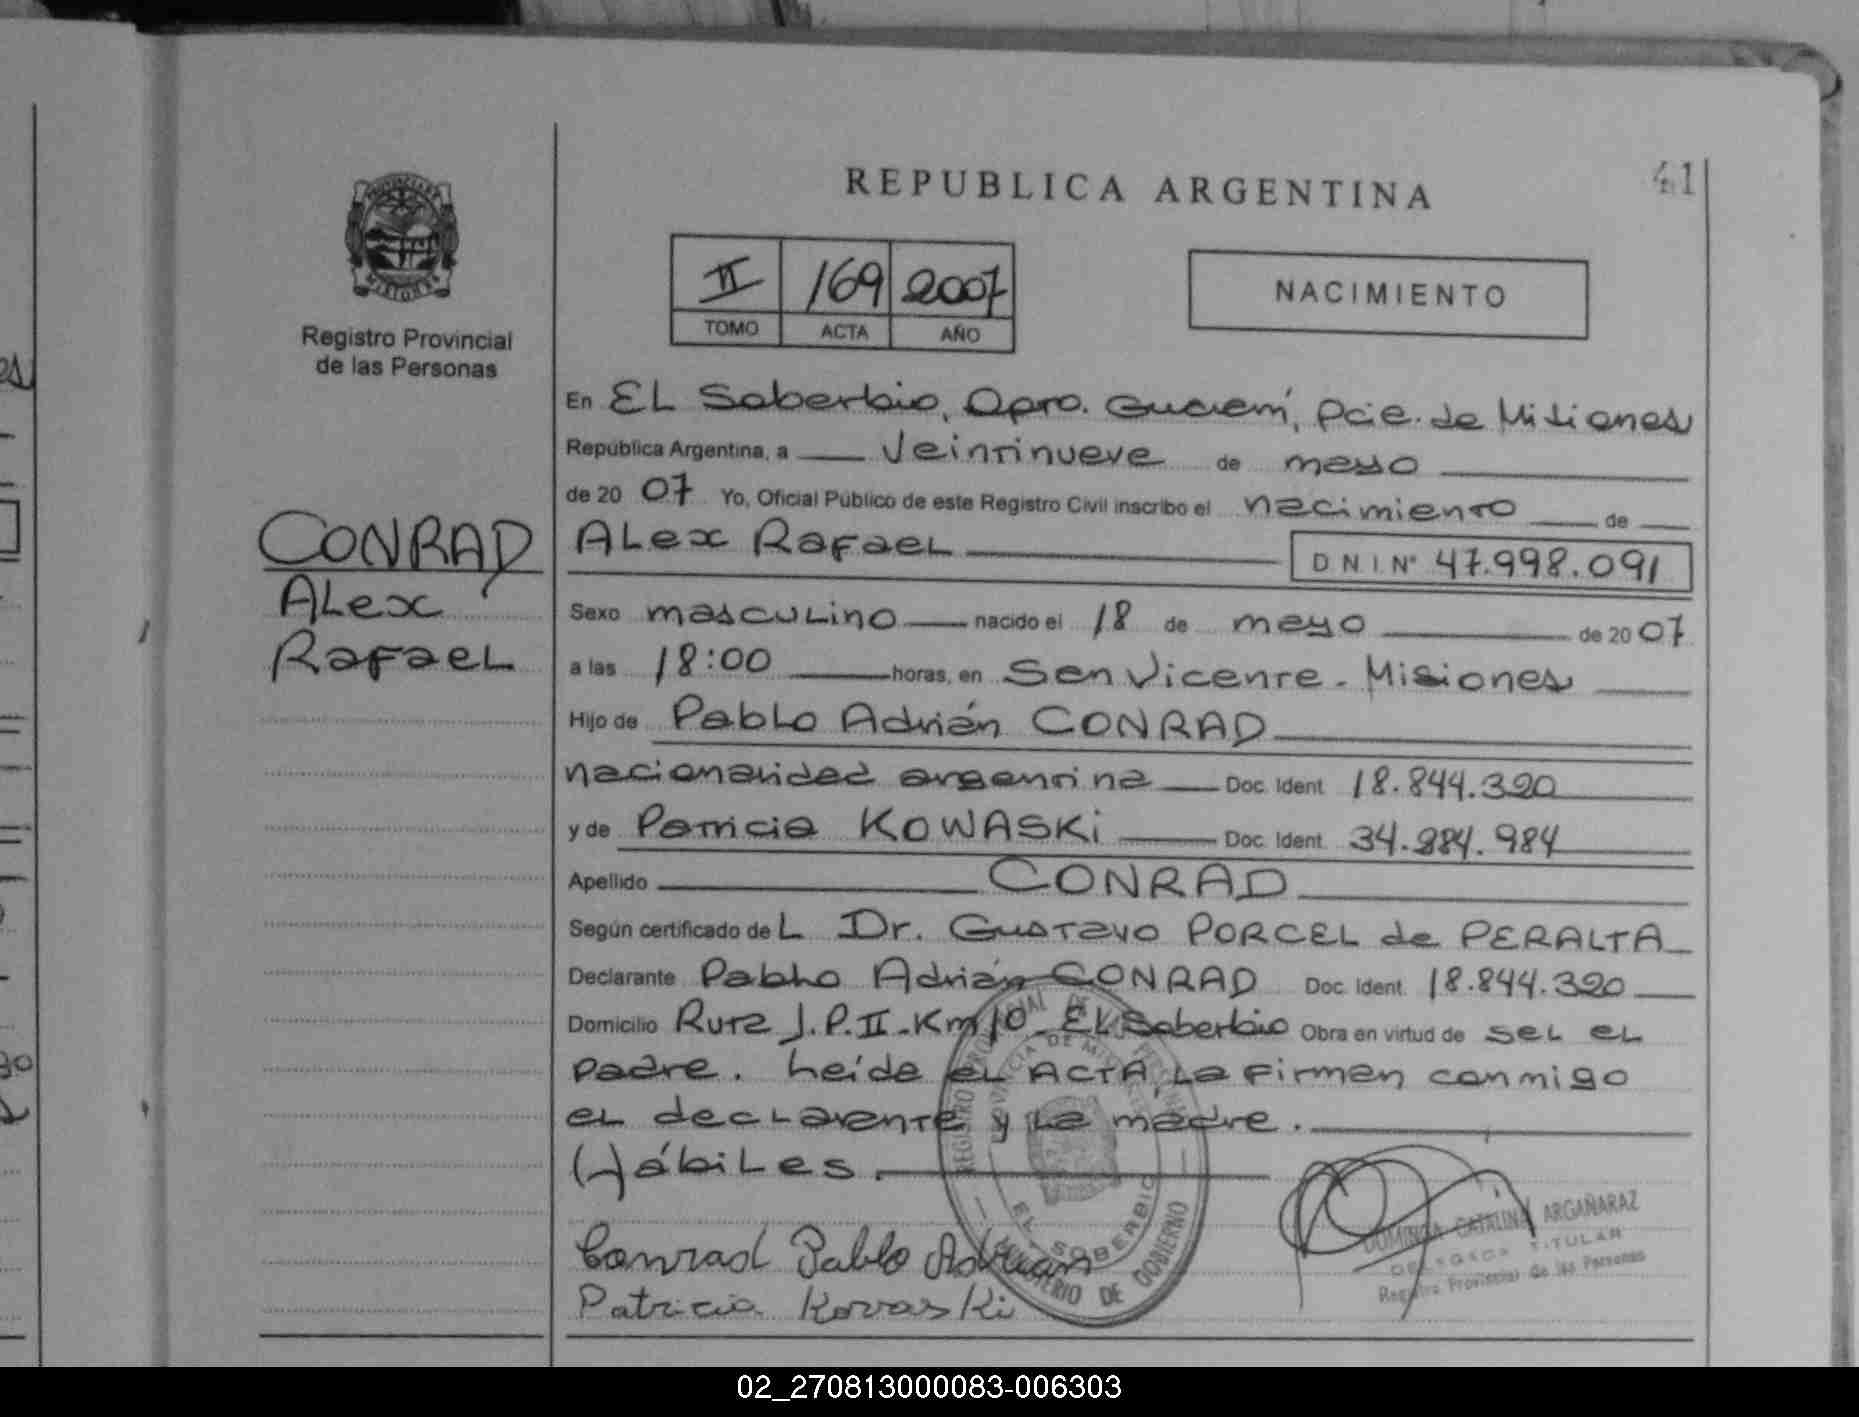 41
REPUBLICA ARGENTINA
II 169 2007
TOMO ACTA AÑO
NACIMIENTO
Registro Provincial
de las Personas
CONRAD
ALex
RafaeL
En EL Soberbio, Dpto. Guaraní, Pcia. de Misiones
República Argentina, a veintinueve de mayo
de 20 07 Yo, Oficial Público de este Registro Civil inscribo el nacimiento de
ALex RafaeL D N I Nº 47.998.091
Sexo mascuLino nacido el 18 de mayo de 20 07
a las 18:00 horas, en San Vicente - Misiones
Hijo de PabLo Adrián CONRAD
nacionalidad argentina Doc. Ident. 18.844.320
y de Patricia KOWASKi Doc. Ident. 34.984
Apellido CONRAD
Según certificado de L Dr. Gustavo PORCEL de PERALTA
Declarante PabLo Adrián CONRAD Doc. Ident. 18.844.320
Domicilio Ruta J.P.II-Km 10- EL Soberbio Obra en virtud de ser eL
padre. Leída eL ACTA La firman conmigo
eL decLarante y La madre.
(-) ábiLes.
Conrad Pablo Adrian
Patricia KovasKi
REGISTRO PROVINCIAL DE LAS PERSONAS
PROVINCIA DE MISIONES
EL SOBERBIO
MINISTERIO DE GOBIERNO
DOMINGA CATALINA ARGAÑARAZ
DELEGADA TITULAR
Registro Provincial de las Personas
02_270813000083-006303